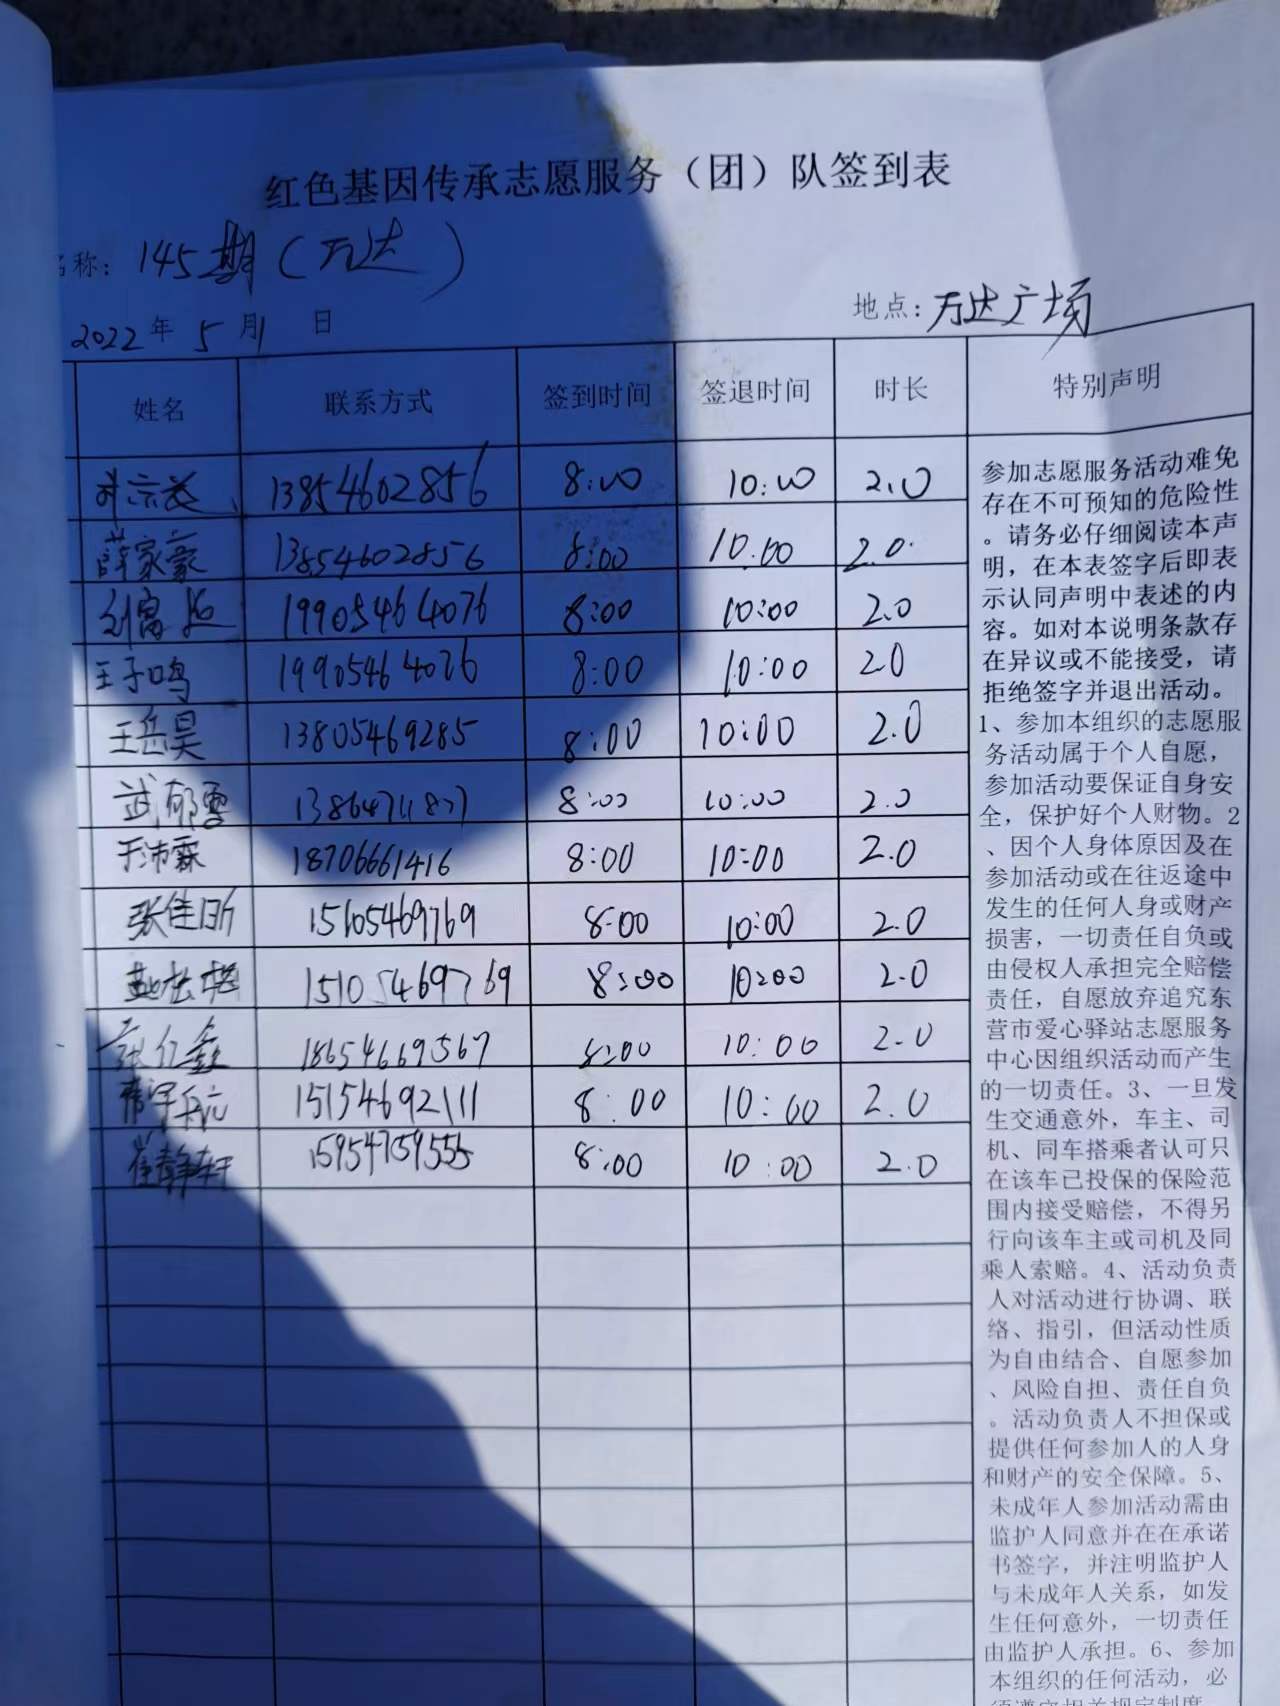 红色基因传承志愿服务（团）队签到表
名称：145期（万达）
2022年5月1日 地点：万达广场
姓名 联系方式 签到时间 签退时间 时长 特别声明
13854602856 8:00 10:00 2.0
薛家豪 13854602856 8:00 10:00 2.0
19905464076 8:00 10:00 2.0
王子鸣 19905464076 8:00 10:00 2.0
王岳昊 13805469285 8:00 10:00 2.0
武郁雪 8:00 10:00 2.0
于沛霖 18706661416 8:00 10:00 2.0
张佳昕 15105469769 8:00 10:00 2.0
15105469769 8:00 10:00 2.0
张亿鑫 18654669567 8:00 10:00 2.0
15154692111 8:00 10:00 2.0
崔静轩 15954759555 8:00 10:00 2.0
参加志愿服务活动难免
存在不可预知的危险性
。请务必仔细阅读本声
明，在本表签字后即表
示认同声明中表述的内
容。如对本说明条款存
在异议或不能接受，请
拒绝签字并退出活动。
1、参加本组织的志愿服
务活动属于个人自愿，
参加活动要保证自身安
全，保护好个人财物。2
、因个人身体原因及在
参加活动或在往返途中
发生的任何人身或财产
损害，一切责任自负或
由侵权人承担完全赔偿
责任，自愿放弃追究东
营市爱心驿站志愿服务
中心因组织活动而产生
的一切责任。3、一旦发
生交通意外，车主、司
机、同车搭乘者认可只
在该车已投保的保险范
围内接受赔偿，不得另
行向该车主或司机及同
乘人索赔。4、活动负责
人对活动进行协调、联
络、指引，但活动性质
为自由结合、自愿参加
、风险自担、责任自负
。活动负责人不担保或
提供任何参加人的人身
和财产的安全保障。5、
未成年人参加活动需由
监护人同意并在在承诺
书签字，并注明监护人
与未成年人关系，如发
生任何意外，一切责任
由监护人承担。6、参加
本组织的任何活动，必
须遵守相关规定制度